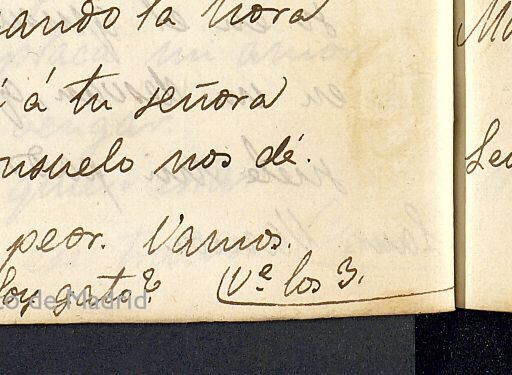 uando la hora
á tu señora
nsuelo nos dé.
peor. Vamos.
hoy grto? (Vᵉ los 3.
to de Madrid
Le